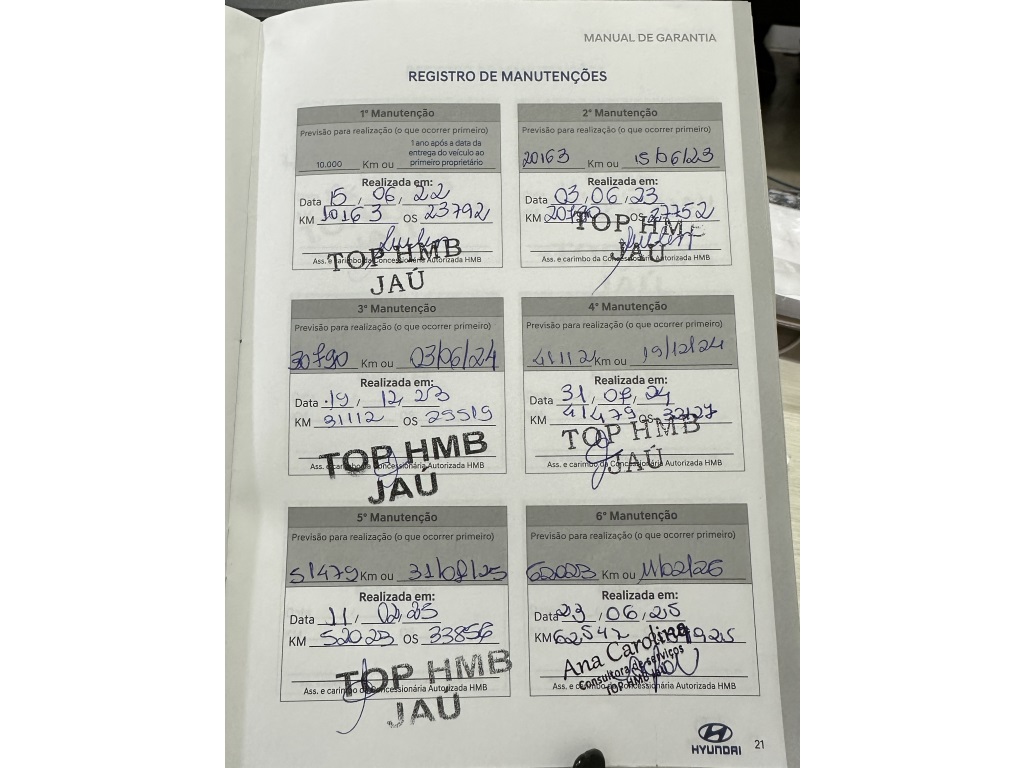 MANUAL DE GARANTIA
REGISTRO DE MANUTENÇÕES
1ª Manutenção
Previsão para realização (o que ocorrer primeiro)
10.000 Km ou 1 ano após a data da entrega do veículo ao primeiro proprietário
Realizada em:
Data 15, 06, 22
KM 10163 OS 23792
Ass. e carimbo da Concessionária Autorizada HMB
TOP HMB
JAÚ
2ª Manutenção
Previsão para realização (o que ocorrer primeiro)
20163 Km ou 15/06/23
Realizada em:
Data 03, 06, 23
KM 20790 OS 27752
TOP HMB
JAÚ
Ass. e carimbo da Concessionária Autorizada HMB
3ª Manutenção
Previsão para realização (o que ocorrer primeiro)
30790 Km ou 03/06/24
Realizada em:
Data 19, 12, 23
KM 31112 OS 29519
TOP HMB
Ass. e carimbo da Concessionária Autorizada HMB
JAÚ
4ª Manutenção
Previsão para realização (o que ocorrer primeiro)
41112 Km ou 19/12/24
Realizada em:
Data 31, 07, 24
KM 41479 OS 32127
TOP HMB
JAÚ
Ass. e carimbo da Concessionária Autorizada HMB
5ª Manutenção
Previsão para realização (o que ocorrer primeiro)
51479 Km ou 31/07/25
Realizada em:
Data 11, 02, 25
KM 52023 OS 33856
TOP HMB
Ass. e carimbo da Concessionária Autorizada HMB
JAÚ
6ª Manutenção
Previsão para realização (o que ocorrer primeiro)
62023 Km ou 11/02/26
Realizada em:
Data 23, 06, 25
KM 62547
Ana Carolina
Consultora de serviços
TOP HMB
Ass. e carimbo da Concessionária Autorizada HMB
HYUNDAI
21